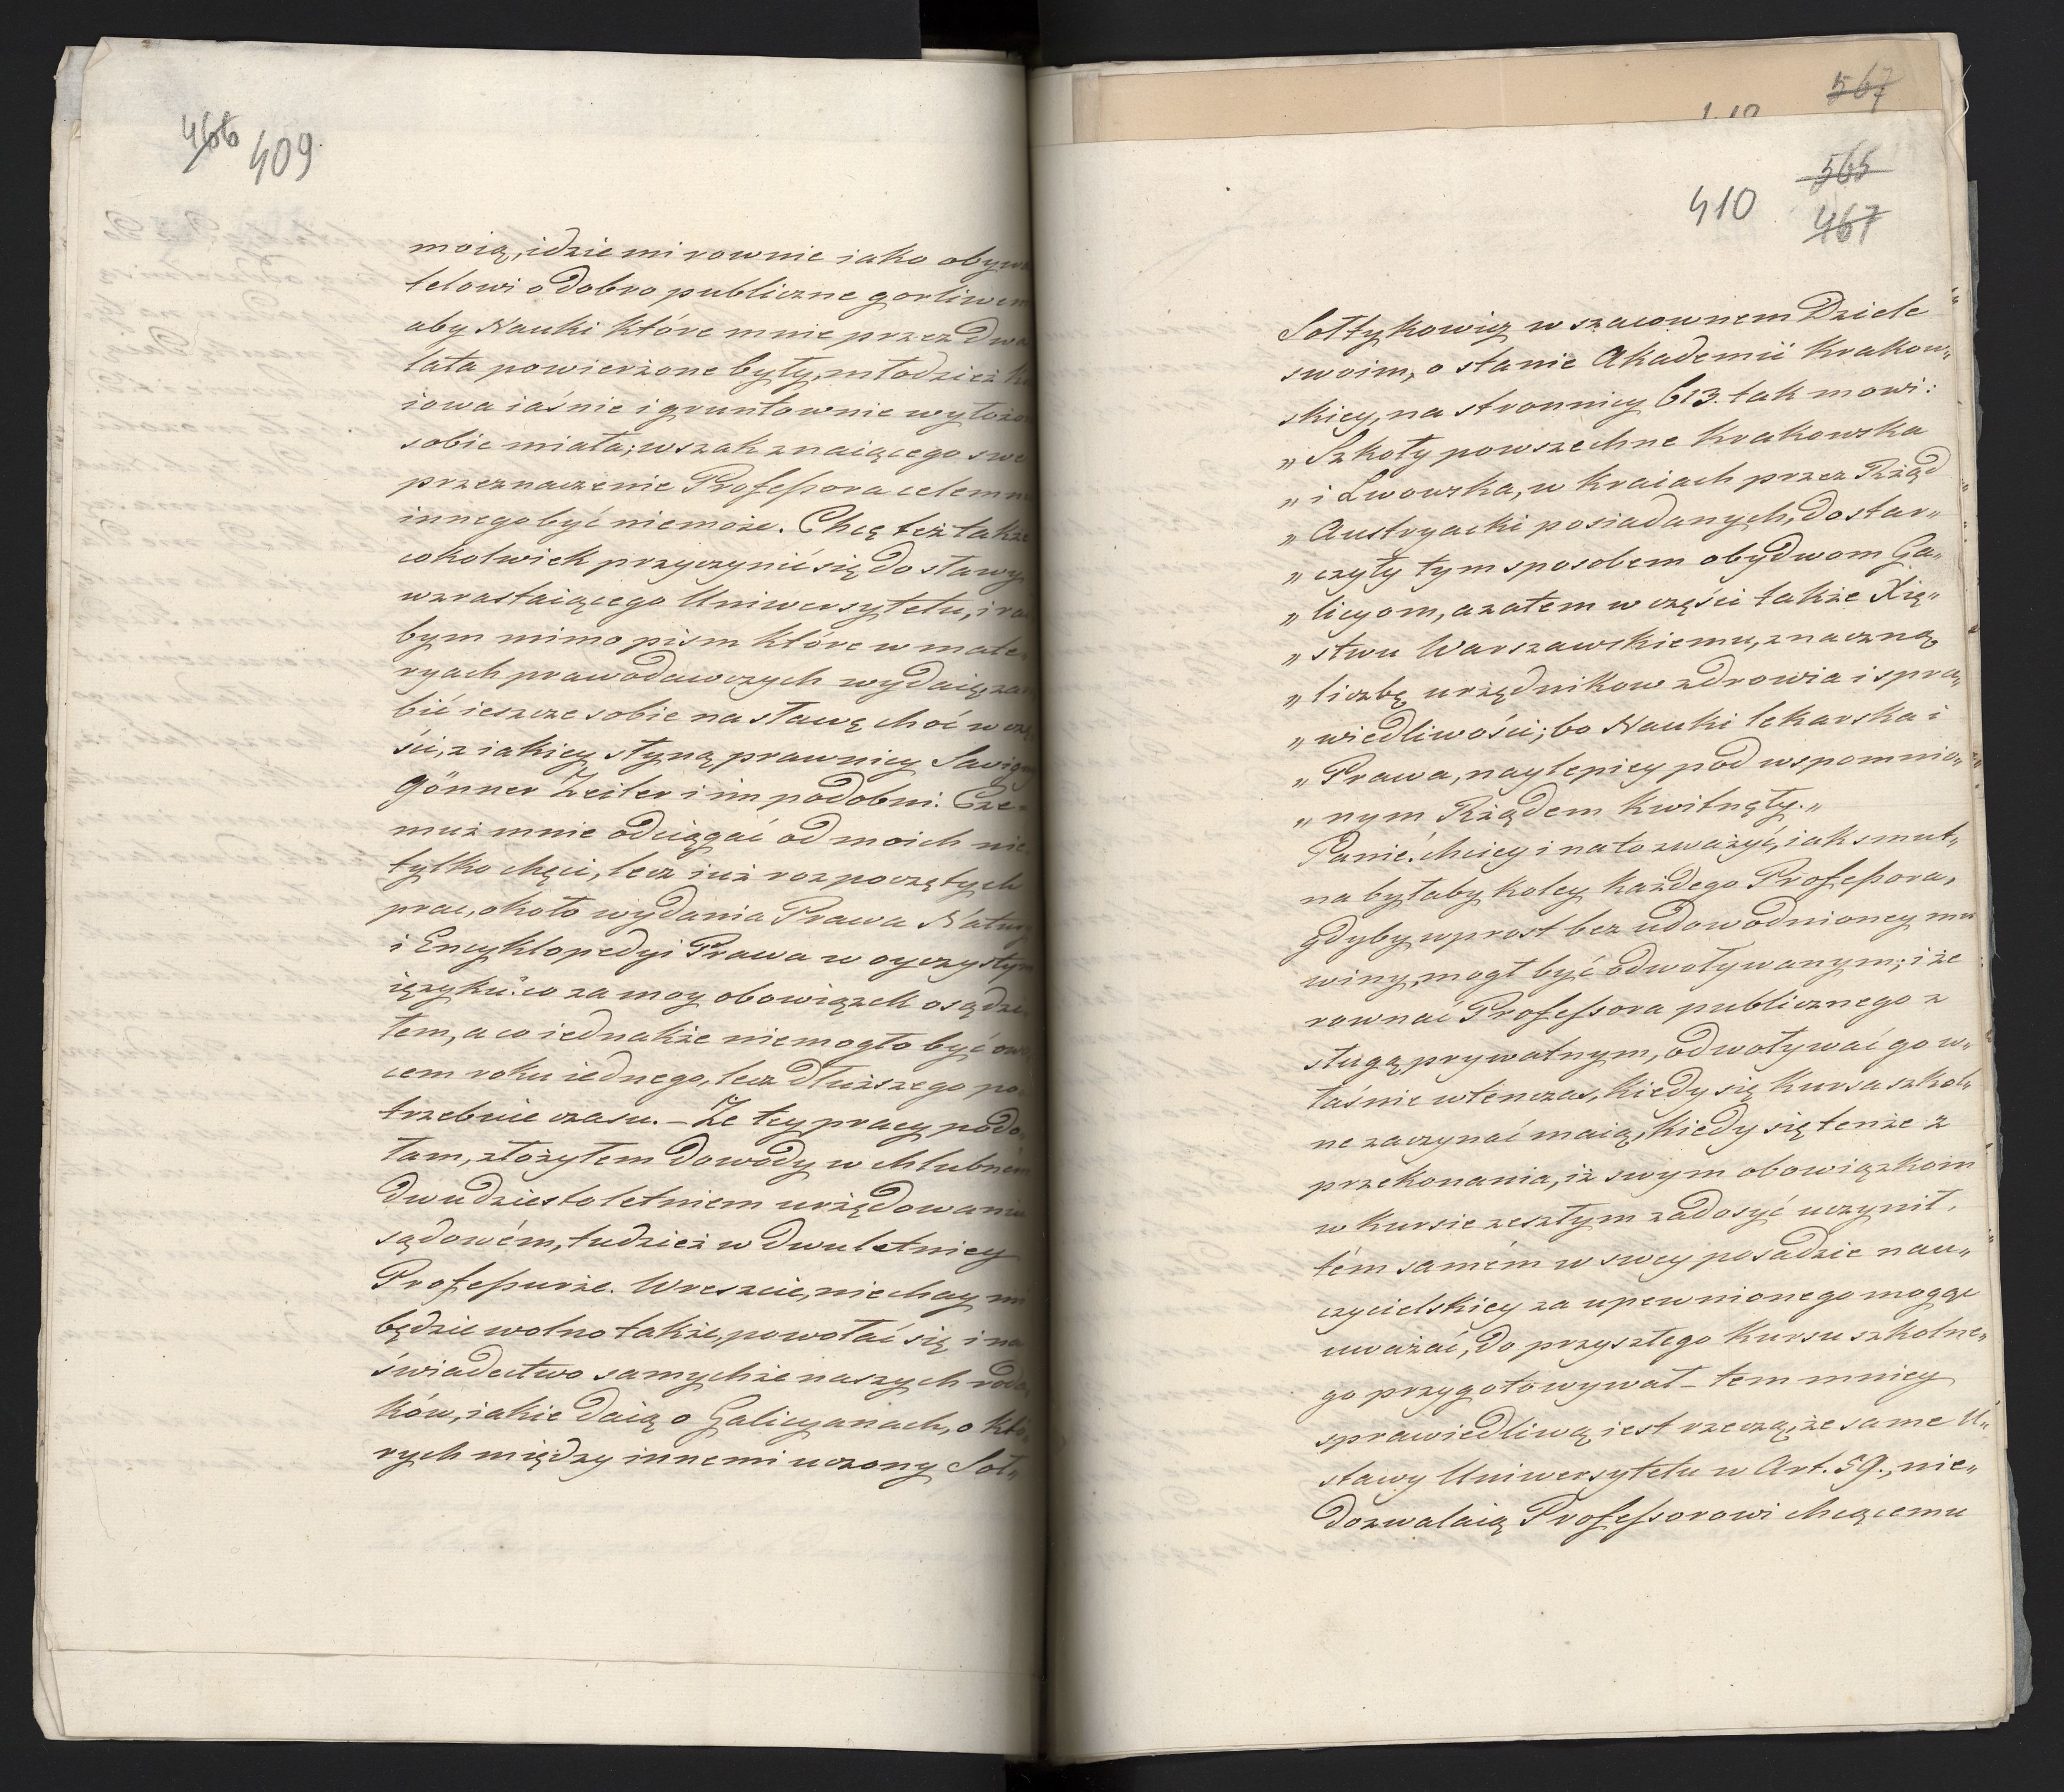 466 409
moią, idzie mi rownie iako obywa
telowi o dobro publiczne gorliwem
aby Nauki które mnie przez dwa
lata powierzone były, młodzież K
iowa iaśnie i gruntownie wyłożo
sobie miała; wszak znaiącego swe
przeznaczenie Professora celem n
innego być niemoże. Chcę też także
cokolwiek przyczynić się do sławy
wzrastaiącego Uniwersytetu, i ra
bym mimo pism które w mate,
ryach prawodawczych wydaię, za
bić ieszcze sobie na sławę choć w czę
ści, z iakiey słyną prawnicy Savigny
Gönner Zeiler i im podobni. Cze-
muż mnie odciągać od moich nie
tylko chęci, lecz iuż rozpoczętych
prac, około wydania Prawa Natury
i Encyklopedyi Prawa w oyczystym
ięzyku: co za moy obowiązek osądzi
łem, a co iednakże niemogło być ow
cem roku iednego, lecz dłuższego po
trzebuie czasu. – Że tey pracy podo,
łam, złożyłem dowody w chlubném
dwudziestoletniem urzędowaniu
sądowém, tudzież w dwuletniey
Professurże. Wreszcie, niechay mi
będzie wolno także, powołać się i na
świadectwo samychże naszych roda
ków, iakie daią o Galicyanach, o któ
rych między innemi uczony Soł„
567
410 565
467
Sołtykowicz w szacownem Dziele
swoim, o stanie Akademii Krakow„
skiey, na stronnicy 613. tak mowi:
„ Szkoły powszechne Krakowska
„ i Lwowska, w Kraiach przez Rząd
„ Austryacki posiadanych, dostar„
„ czyły tym sposobem obydwom Ga„
„ licyom, a zatem w części także Xię„
„ stwu Warszawskiemu, znaczną
„ liczbę urzędnikow zdrowia i spra„
„ wiedliwości; bo Nauki lekarska i
„ Prawa, naylepiey pod wspomnio„
„ nym Rządem kwitnęły. „
Panie! chciey i na to zważyć, iak smut„
na byłaby koley każdego Professora,
gdyby wprost bez udowodnioney mu
winy, mogł być odwoływanym; i że
rownać Professora publicznego z
sługą prywatnym, odwoływać go w„
łaśnie wtenczas, kiedy się Kursa szkol„
ne zaczynać maią, kiedy się tenże z
przekonania, iż swym obowiązkom
w kursie zeszłym zadosyć uczynił,
tém samém w swey posadzie nau„
czycielskiey za upewnionego mogąc
uważać, do przyszłego Kursu szkolne„
go przygotowywał – tem mniey
sprawiedliwą iest rzeczą, że same U„
stawy Uniwersytetu w Art. 59., nie„
dozwalaią Professorowi chcącemu